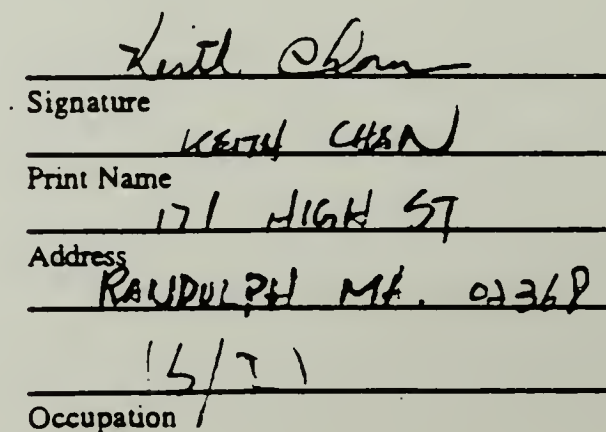 Keith Chan
Signature
KEITH CHAN
Print Name
171 HIGH ST
Address
RANDOLPH MA. 02368
Occupation